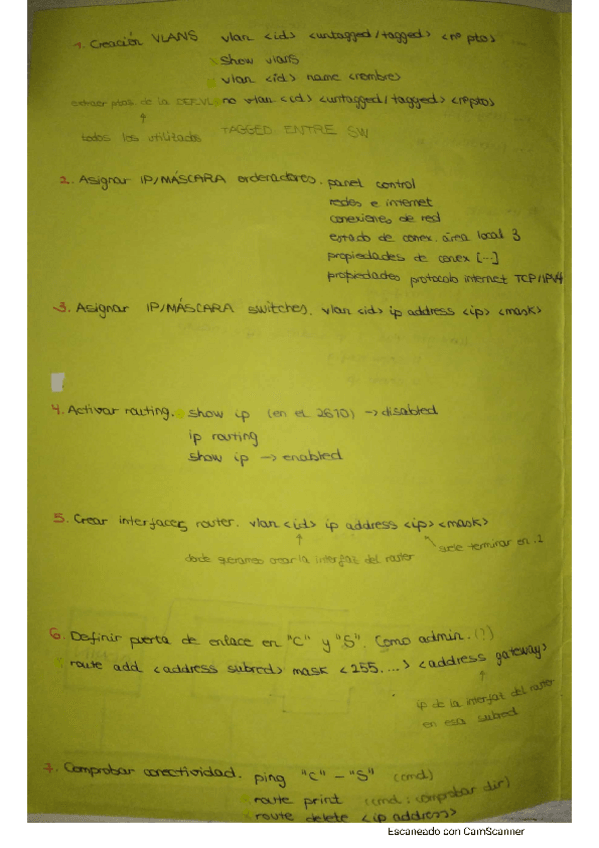 1. Creación VLANS vlan <id> <untagged/tagged> <nº ptos>
show vlans
vlan <id> name <nombre>
extraer ptos de la DEF.VL no vlan <id> <untagged/tagged> <nº ptos>
todos los utilizados TAGGED ENTRE SW
2. Asignar IP/MÁSCARA ordenadores. panel control
redes e internet
conexiones de red
estado de conex. área local 3
propiedades de conex [...]
propiedades protocolo internet TCP/IPV4
3. Asignar IP/MÁSCARA switches. vlan <id> ip address <ip> <mask>
4. Activar routing. show ip (en el 2610) -> disabled
ip routing
show ip -> enabled
5. Crear interfaces router. vlan <id> ip address <ip> <mask>
donde queramos crear la interfaz del router
suele terminar en .1
6. Definir puerta de enlace en "C" y "S". Como admin. (?)
route add <address subred> mask <255....> <address gateway>
ip de la interfaz del router
en esa subred
7. Comprobar conectividad. ping "C" - "S" (cmd)
route print (cmd: comprobar dir)
route delete <ip address>
Escaneado con CamScanner